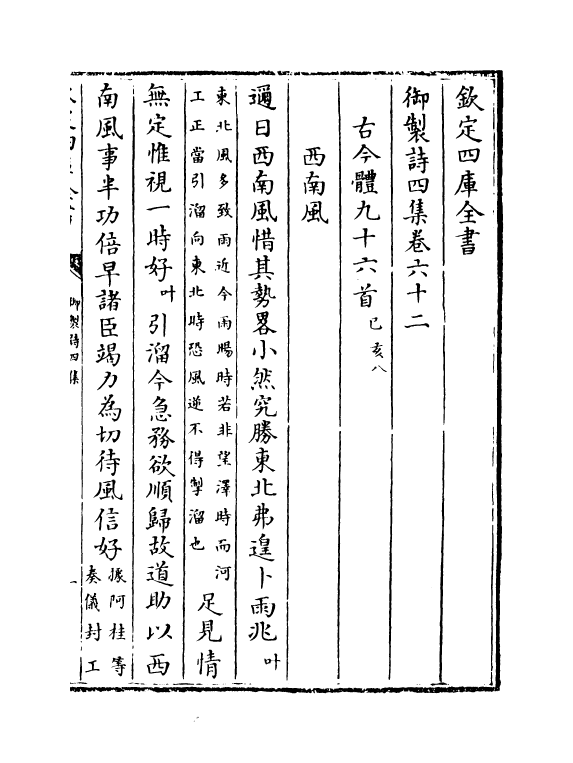 欽定四庫全書
御製詩四集卷六十二
古今體九十六首己亥八
西南風
邇日西南風惜其勢畧小然究勝東北弗遑卜雨兆叶
東北風多致雨近今雨賜時若非望澤時而河
工正當引溜向東北時恐風逆不得掣溜也
足見情
無定惟視一時好叶引溜今急務欲順歸故道助以西
南風事半功倍早諸臣竭力為切待風信好
據阿桂等
奏儀封工
御製詩四集
一